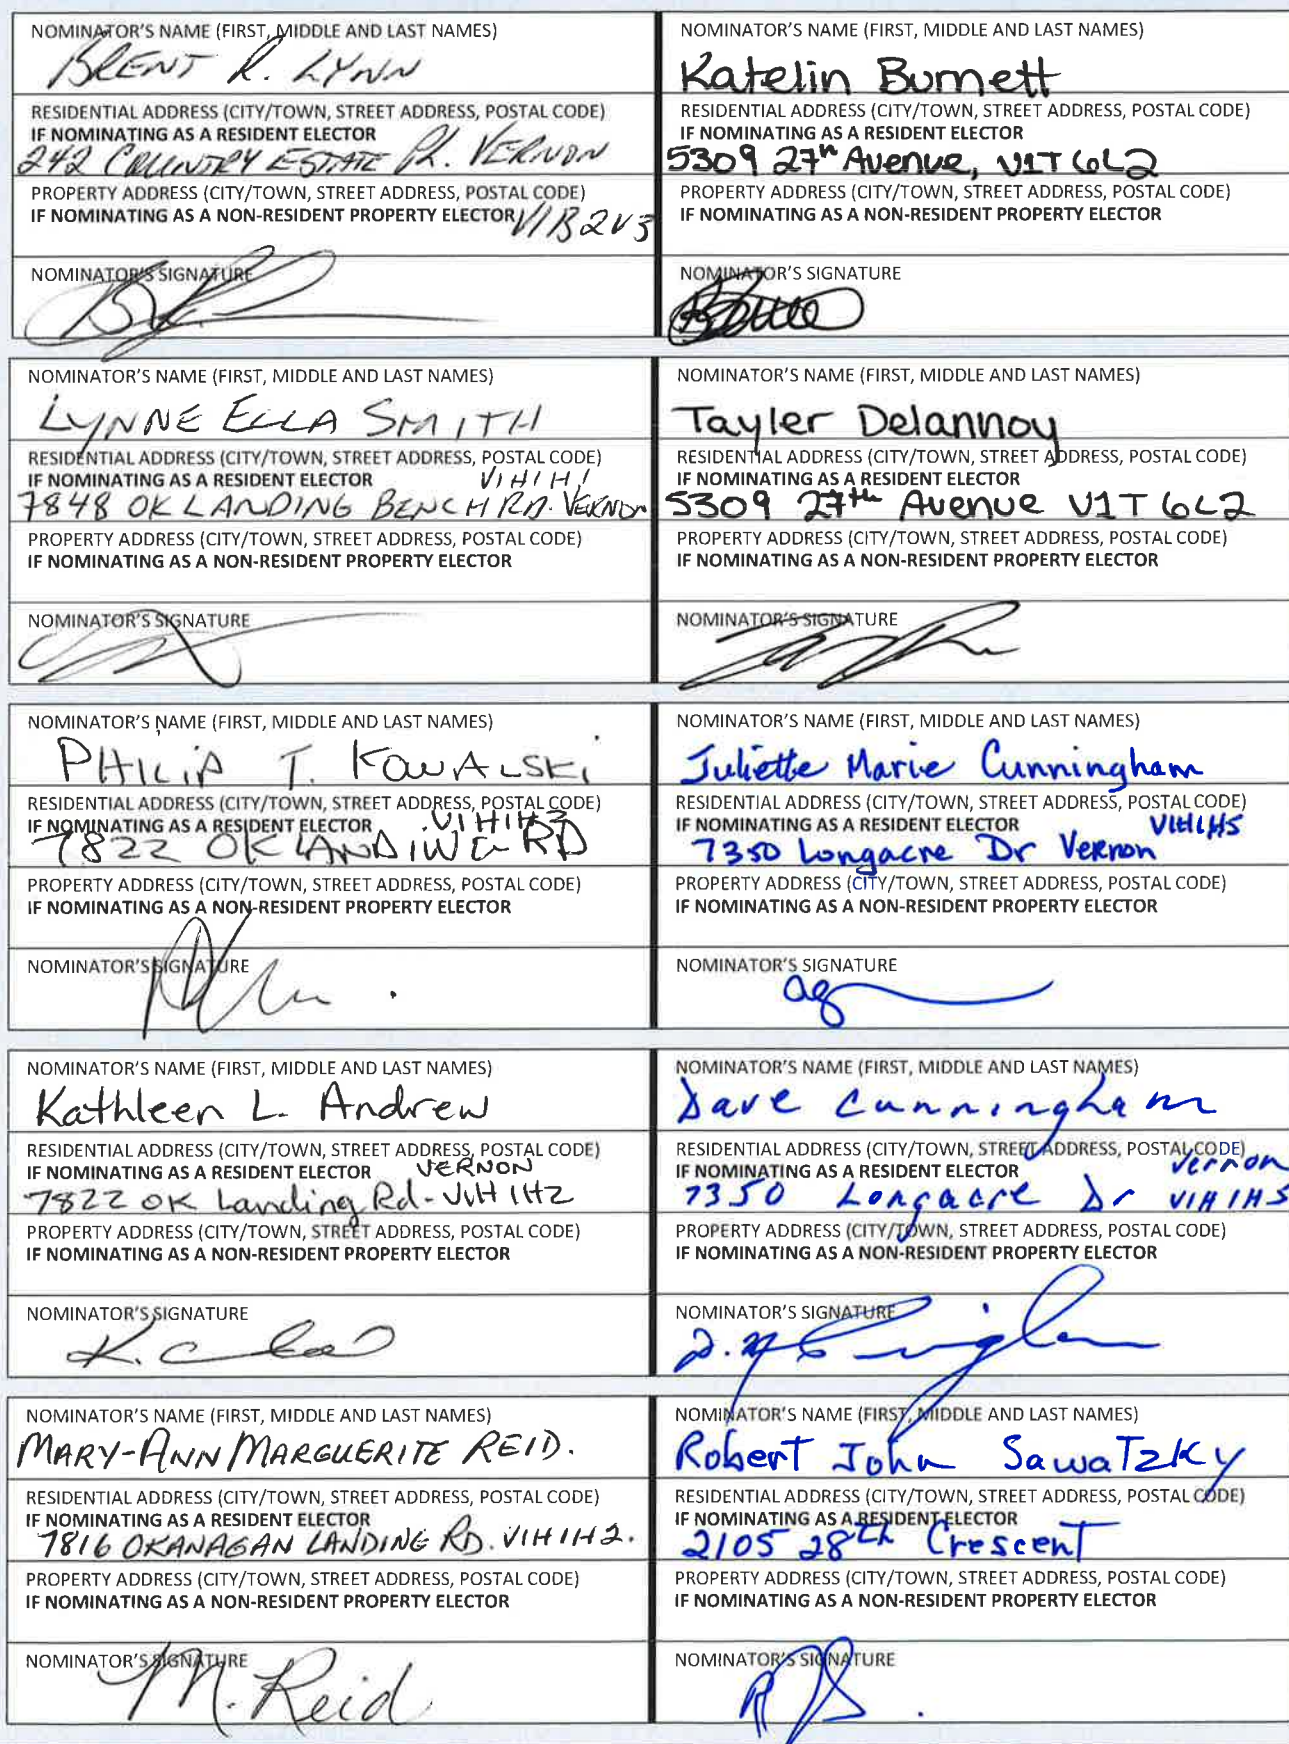 NOMINATOR'S NAME (FIRST, MIDDLE AND LAST NAMES)
BRENT R. LYNN
RESIDENTIAL ADDRESS (CITY/TOWN, STREET ADDRESS, POSTAL CODE)
IF NOMINATING AS A RESIDENT ELECTOR
242 COUNTRY ESTATE PL. VERNON
PROPERTY ADDRESS (CITY/TOWN, STREET ADDRESS, POSTAL CODE)
IF NOMINATING AS A NON-RESIDENT PROPERTY ELECTOR V1B2V3
NOMINATOR'S SIGNATURE
NOMINATOR'S NAME (FIRST, MIDDLE AND LAST NAMES)
Katelin Burnett
RESIDENTIAL ADDRESS (CITY/TOWN, STREET ADDRESS, POSTAL CODE)
IF NOMINATING AS A RESIDENT ELECTOR
5309 27th Avenue, V1T 6L2
PROPERTY ADDRESS (CITY/TOWN, STREET ADDRESS, POSTAL CODE)
IF NOMINATING AS A NON-RESIDENT PROPERTY ELECTOR
NOMINATOR'S SIGNATURE
NOMINATOR'S NAME (FIRST, MIDDLE AND LAST NAMES)
LYNNE ELLA SMITH
RESIDENTIAL ADDRESS (CITY/TOWN, STREET ADDRESS, POSTAL CODE)
IF NOMINATING AS A RESIDENT ELECTOR V1H1H1
7848 OK LANDING BENCH RD. VERNON
PROPERTY ADDRESS (CITY/TOWN, STREET ADDRESS, POSTAL CODE)
IF NOMINATING AS A NON-RESIDENT PROPERTY ELECTOR
NOMINATOR'S SIGNATURE
NOMINATOR'S NAME (FIRST, MIDDLE AND LAST NAMES)
Tayler Delannoy
RESIDENTIAL ADDRESS (CITY/TOWN, STREET ADDRESS, POSTAL CODE)
IF NOMINATING AS A RESIDENT ELECTOR
5309 27th Avenue V1T 6L2
PROPERTY ADDRESS (CITY/TOWN, STREET ADDRESS, POSTAL CODE)
IF NOMINATING AS A NON-RESIDENT PROPERTY ELECTOR
NOMINATOR'S SIGNATURE
NOMINATOR'S NAME (FIRST, MIDDLE AND LAST NAMES)
PHILIP T. KOWALSKI
RESIDENTIAL ADDRESS (CITY/TOWN, STREET ADDRESS, POSTAL CODE)
IF NOMINATING AS A RESIDENT ELECTOR
7822 OK LANDING RD
PROPERTY ADDRESS (CITY/TOWN, STREET ADDRESS, POSTAL CODE)
IF NOMINATING AS A NON-RESIDENT PROPERTY ELECTOR
NOMINATOR'S SIGNATURE
NOMINATOR'S NAME (FIRST, MIDDLE AND LAST NAMES)
Juliette Marie Cunningham
RESIDENTIAL ADDRESS (CITY/TOWN, STREET ADDRESS, POSTAL CODE)
IF NOMINATING AS A RESIDENT ELECTOR V1H1H5
7350 Longacre Dr Vernon
PROPERTY ADDRESS (CITY/TOWN, STREET ADDRESS, POSTAL CODE)
IF NOMINATING AS A NON-RESIDENT PROPERTY ELECTOR
NOMINATOR'S SIGNATURE
NOMINATOR'S NAME (FIRST, MIDDLE AND LAST NAMES)
Kathleen L. Andrew
RESIDENTIAL ADDRESS (CITY/TOWN, STREET ADDRESS, POSTAL CODE)
IF NOMINATING AS A RESIDENT ELECTOR VERNON
7822 OK Landing Rd - V1H 1H2
PROPERTY ADDRESS (CITY/TOWN, STREET ADDRESS, POSTAL CODE)
IF NOMINATING AS A NON-RESIDENT PROPERTY ELECTOR
NOMINATOR'S SIGNATURE
NOMINATOR'S NAME (FIRST, MIDDLE AND LAST NAMES)
Dave Cunningham
RESIDENTIAL ADDRESS (CITY/TOWN, STREET ADDRESS, POSTAL CODE)
IF NOMINATING AS A RESIDENT ELECTOR Vernon
7350 Longacre Dr V1H 1H5
PROPERTY ADDRESS (CITY/TOWN, STREET ADDRESS, POSTAL CODE)
IF NOMINATING AS A NON-RESIDENT PROPERTY ELECTOR
NOMINATOR'S SIGNATURE
NOMINATOR'S NAME (FIRST, MIDDLE AND LAST NAMES)
MARY-ANN MARGUERITE REID.
RESIDENTIAL ADDRESS (CITY/TOWN, STREET ADDRESS, POSTAL CODE)
IF NOMINATING AS A RESIDENT ELECTOR
7816 OKANAGAN LANDING RD. V1H 1H2.
PROPERTY ADDRESS (CITY/TOWN, STREET ADDRESS, POSTAL CODE)
IF NOMINATING AS A NON-RESIDENT PROPERTY ELECTOR
NOMINATOR'S SIGNATURE
M. Reid
NOMINATOR'S NAME (FIRST, MIDDLE AND LAST NAMES)
Robert John Sawatzky
RESIDENTIAL ADDRESS (CITY/TOWN, STREET ADDRESS, POSTAL CODE)
IF NOMINATING AS A RESIDENT ELECTOR
2105 28th Crescent
PROPERTY ADDRESS (CITY/TOWN, STREET ADDRESS, POSTAL CODE)
IF NOMINATING AS A NON-RESIDENT PROPERTY ELECTOR
NOMINATOR'S SIGNATURE